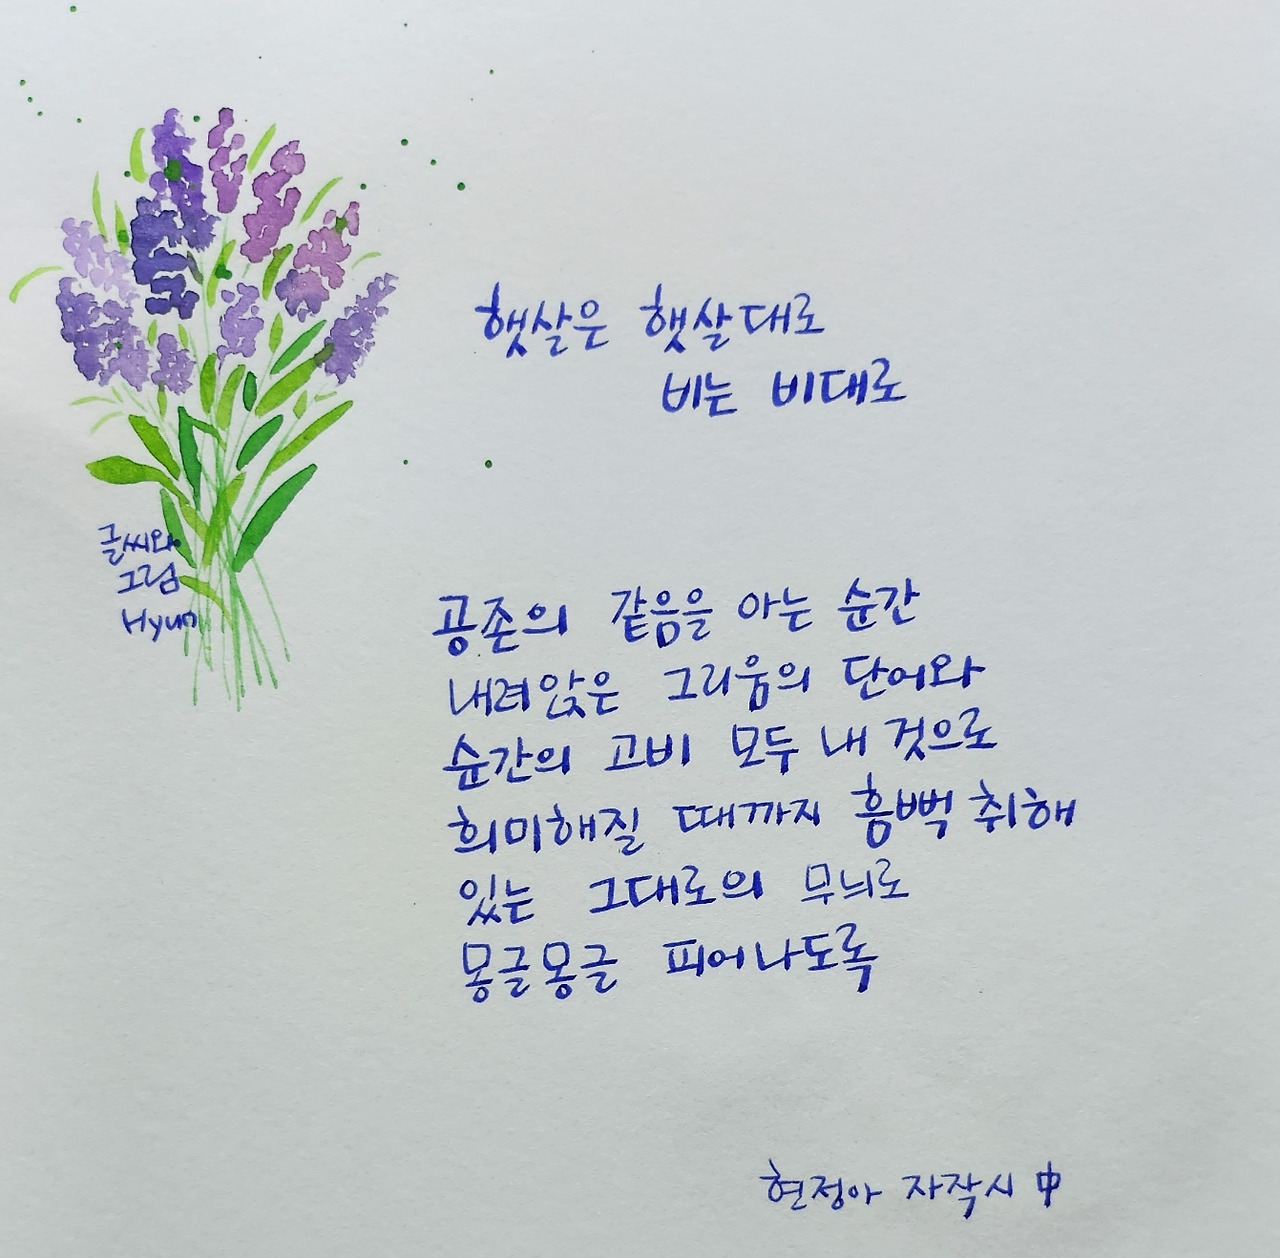 햇살은 햇살대로
비는 비대로
글씨와
그림
Hyun
공존의 같음을 아는 순간
내려앉은 그리움의 단어와
순간의 고비 모두 내 것으로
희미해질 때까지 흠뻑 취해
있는 그대로의 무늬로
몽글몽글 피어나도록
현정아 자작시 中